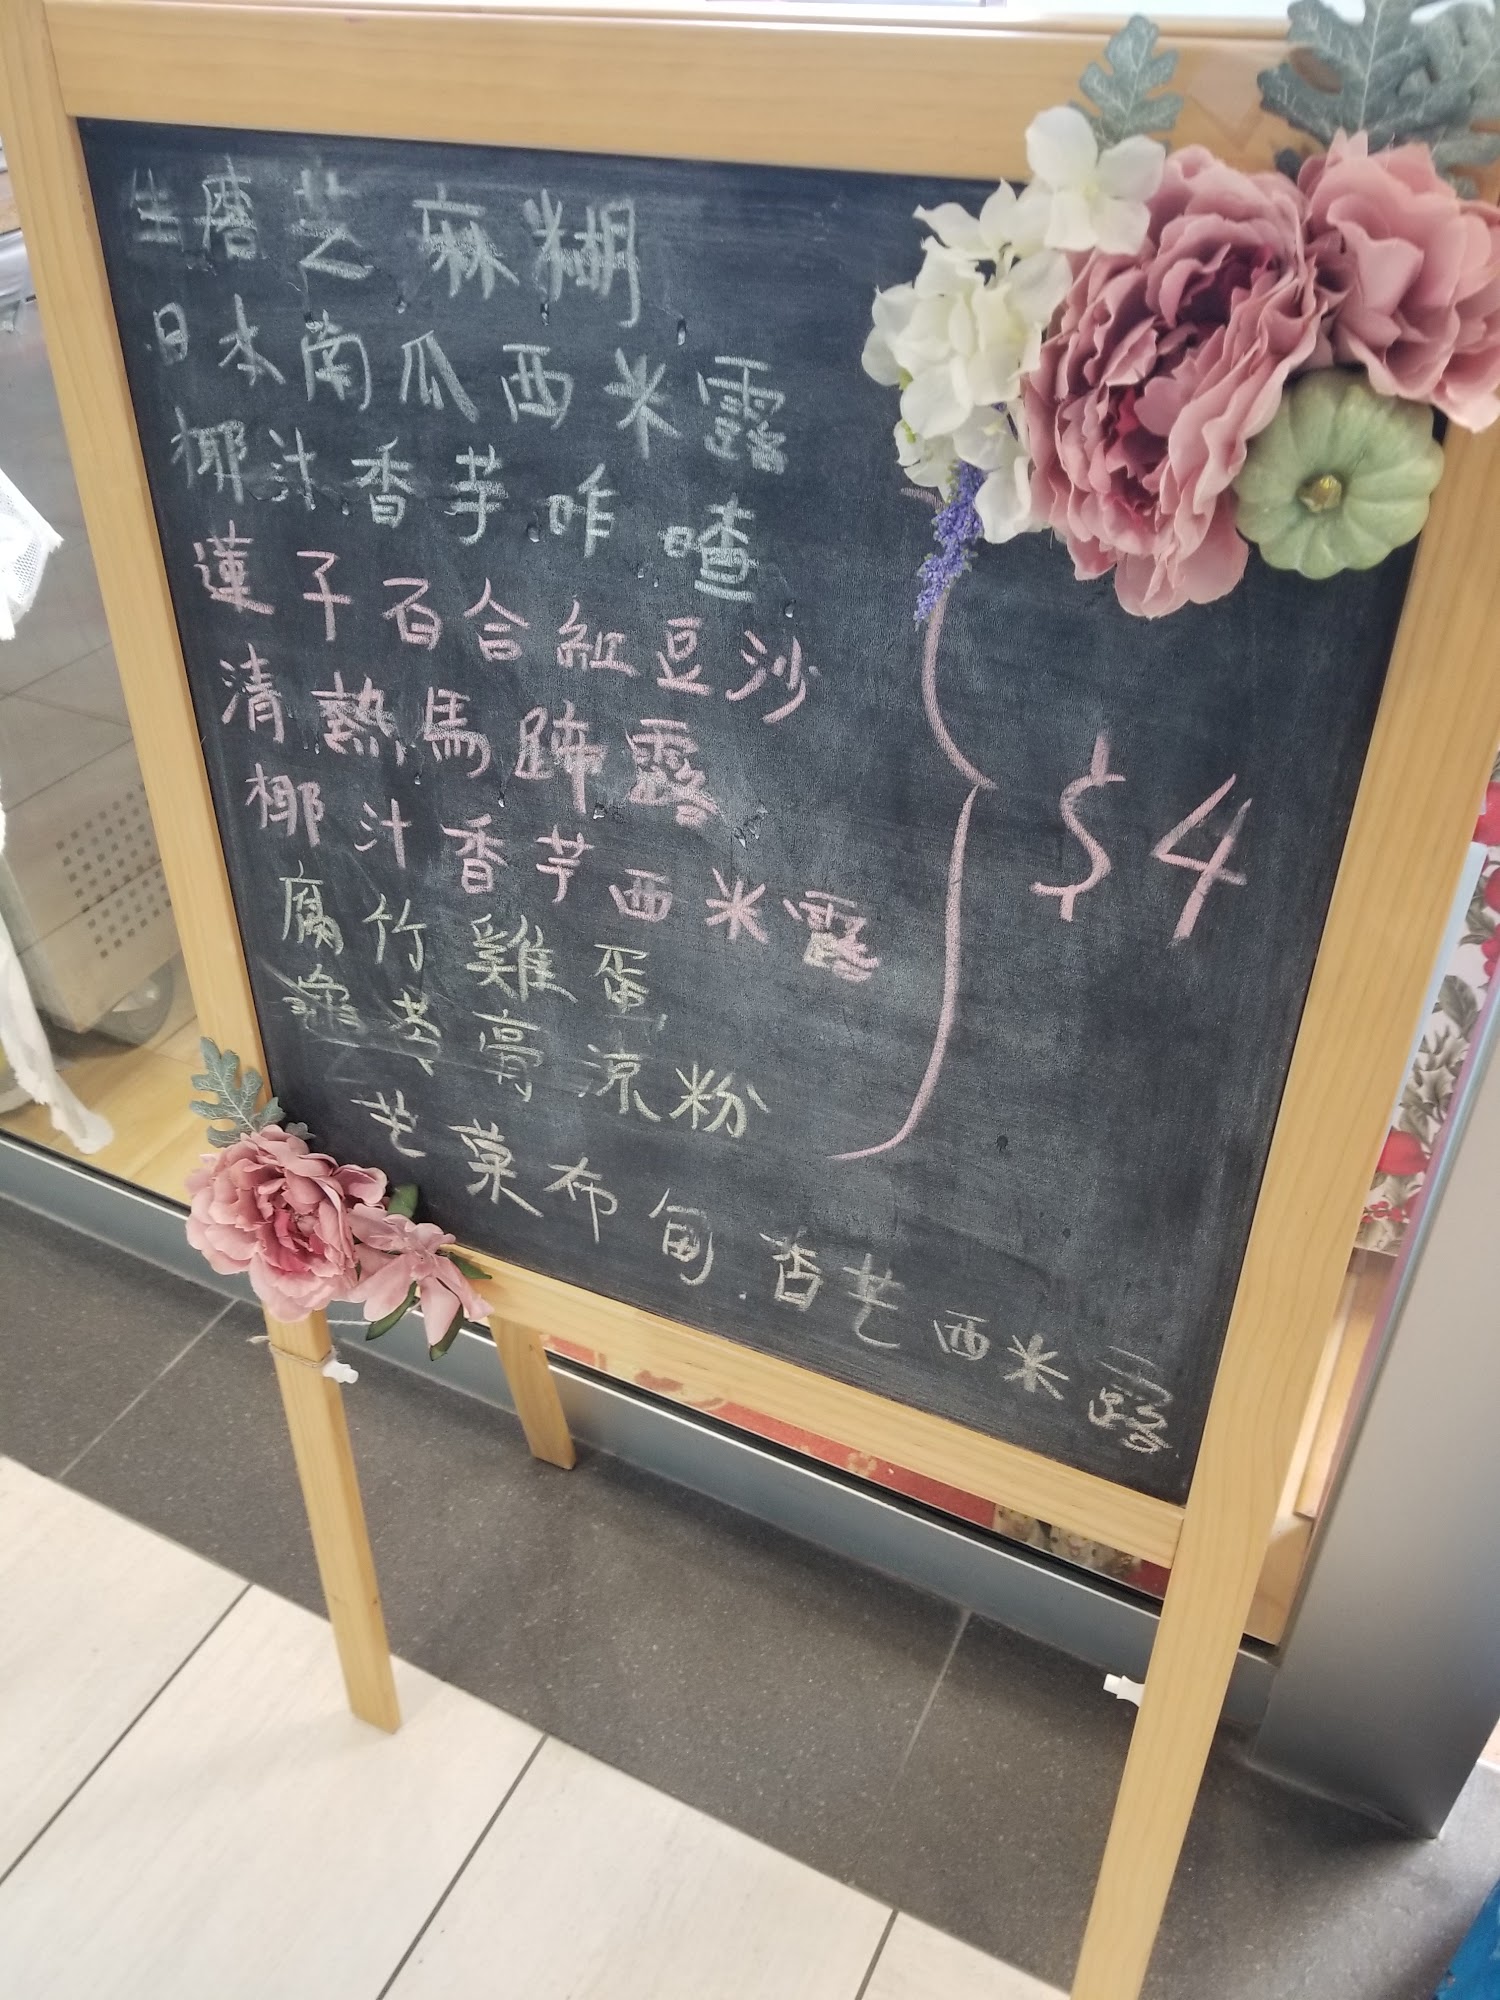 生磨芝麻糊
日本南瓜西米露
椰汁香芋咋喳
蓮子百合紅豆沙
清熱馬蹄露
椰汁香芋西米露
$4
腐竹雞蛋
龜苓膏涼粉
芒菓布甸.香芒西米露